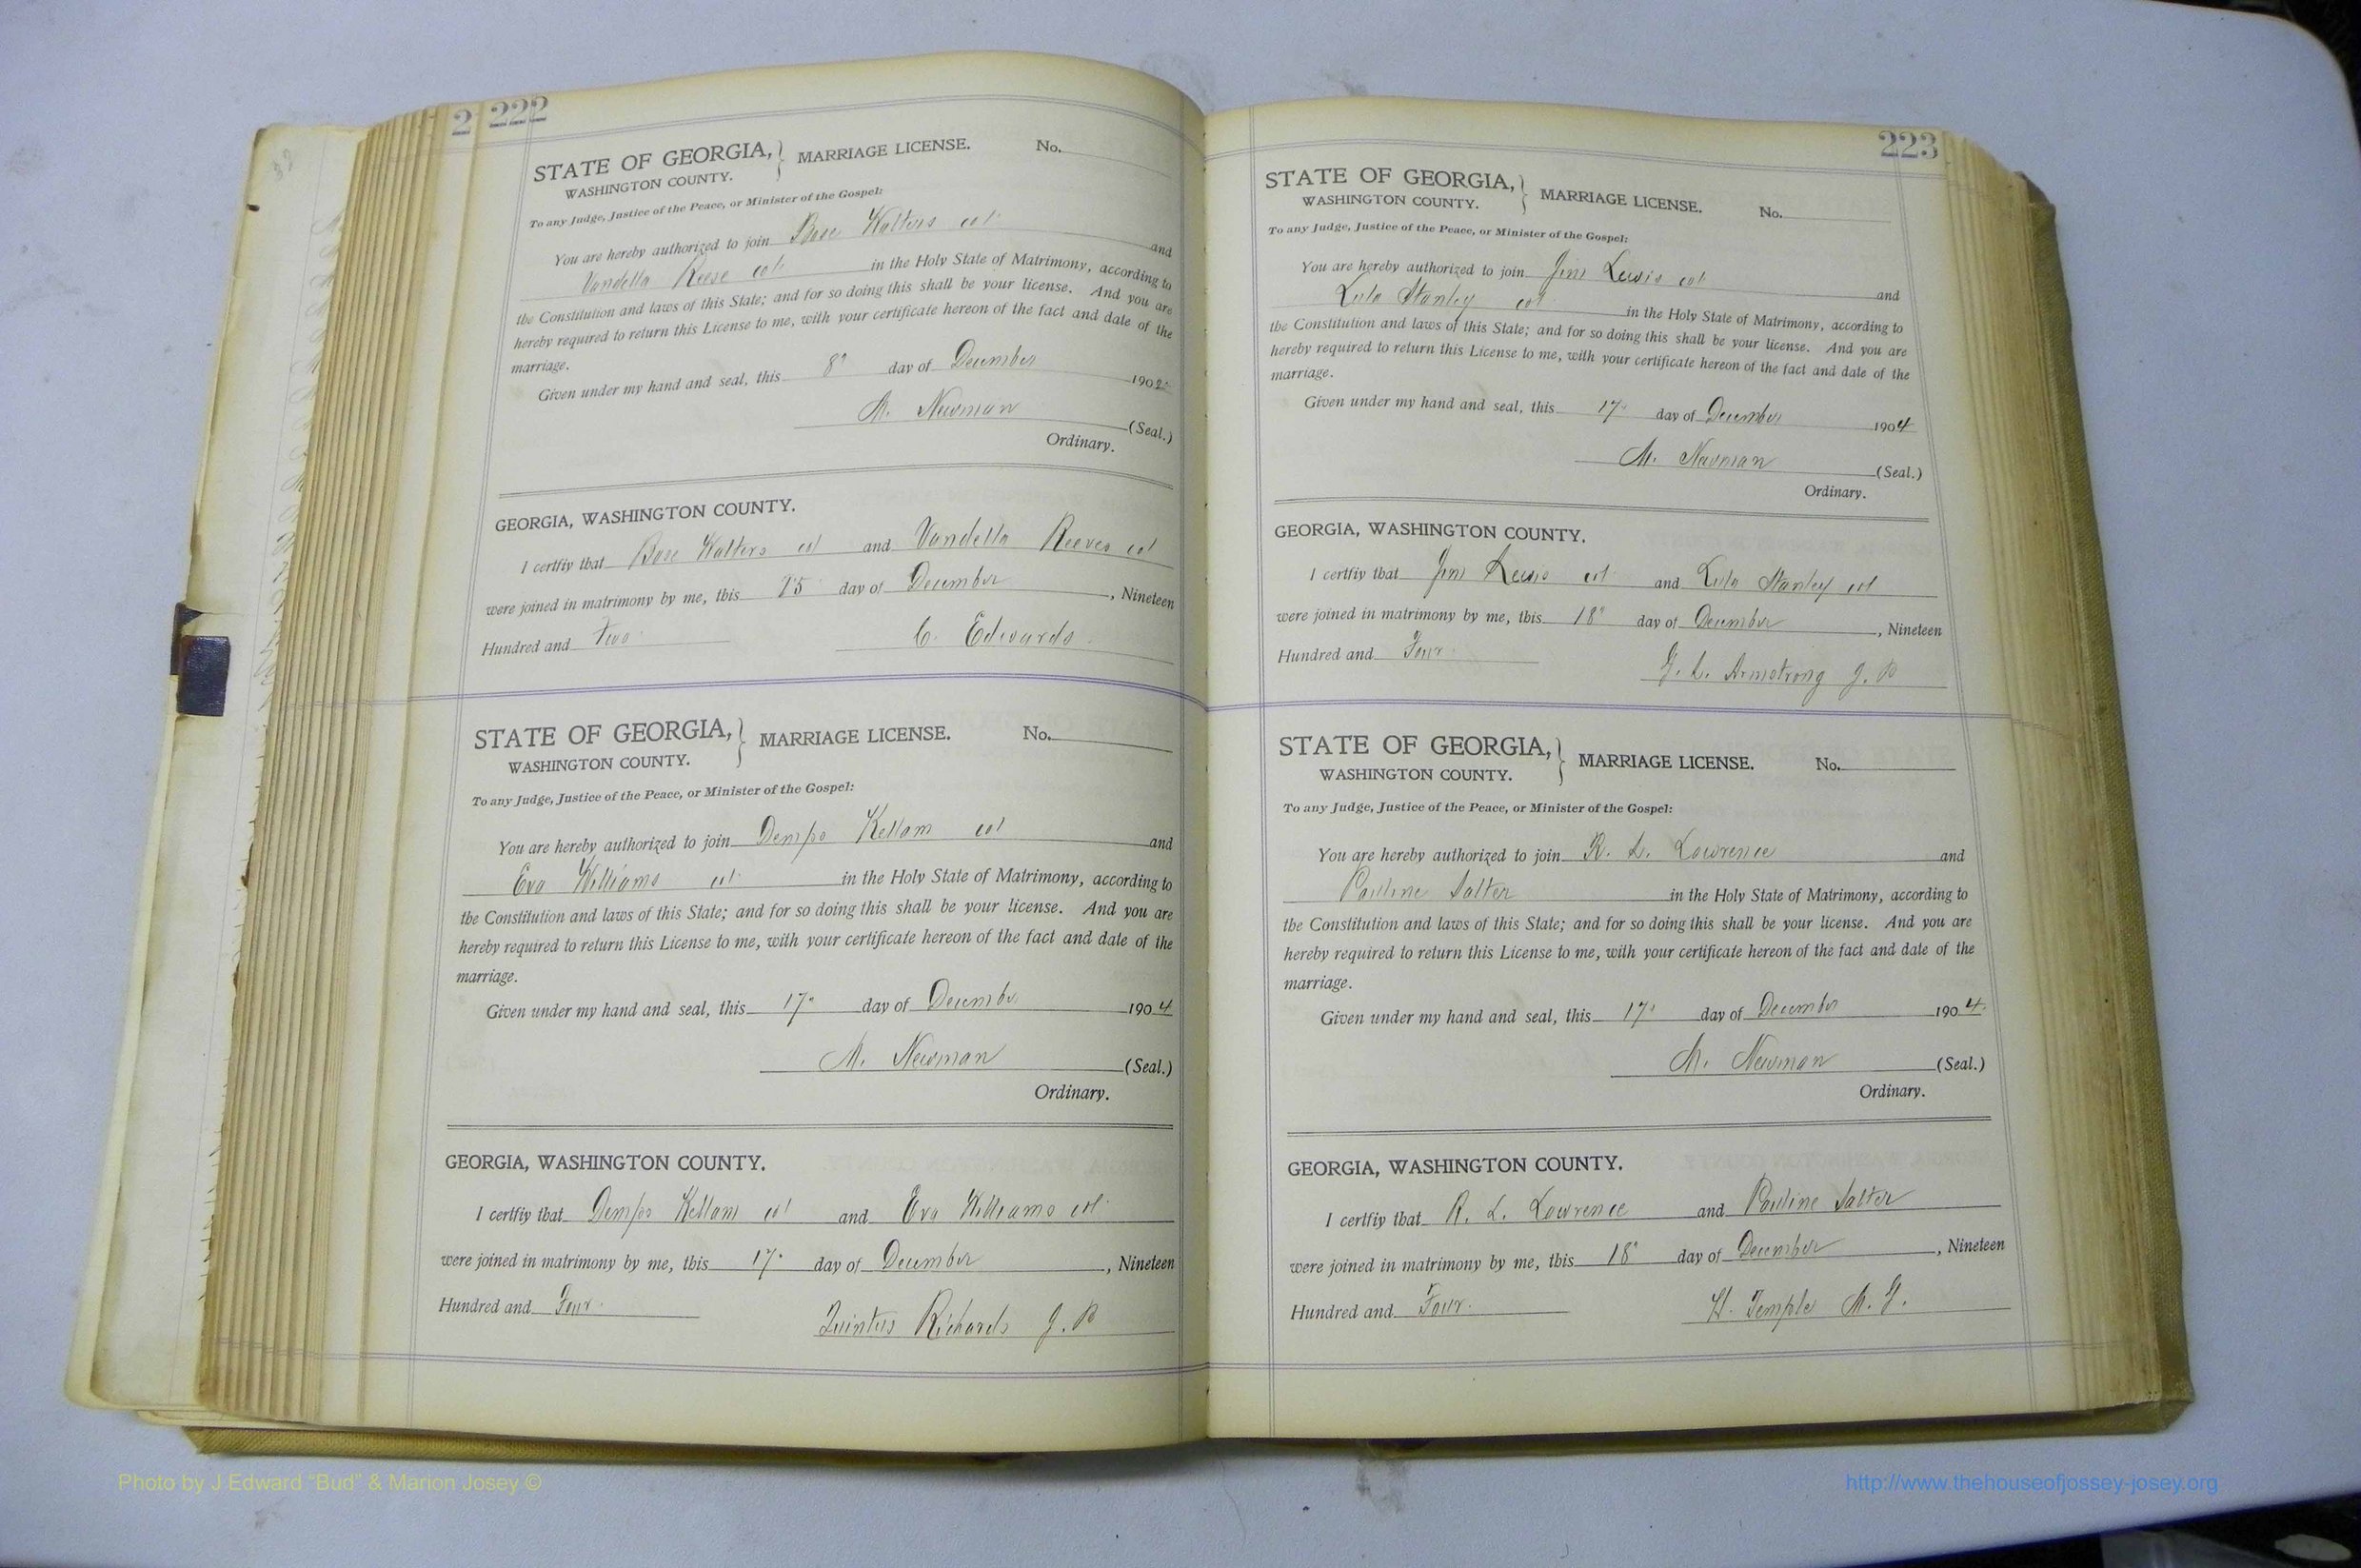 2 222
STATE OF GEORGIA, } MARRIAGE LICENSE. No.
WASHINGTON COUNTY.
To any Judge, Justice of the Peace, or Minister of the Gospel:
You are hereby authorized to join Bose Walters col and
Vandella Reese col in the Holy State of Matrimony, according to
the Constitution and laws of this State; and for so doing this shall be your license. And you are
hereby required to return this License to me, with your certificate hereon of the fact and date of the
marriage.
Given under my hand and seal, this 8" day of December 1902
M. Newman (Seal.)
Ordinary.
GEORGIA, WASHINGTON COUNTY.
I certfiy that Bose Walters col and Vandella Reeves col
were joined in matrimony by me, this 25 day of December, Nineteen
Hundred and Two C. Edwards.
STATE OF GEORGIA, } MARRIAGE LICENSE. No.
WASHINGTON COUNTY.
To any Judge, Justice of the Peace, or Minister of the Gospel:
You are hereby authorized to join Dempo Kellam col and
Eva Williams col in the Holy State of Matrimony, according to
the Constitution and laws of this State; and for so doing this shall be your license. And you are
hereby required to return this License to me, with your certificate hereon of the fact and date of the
marriage.
Given under my hand and seal, this 17" day of December 1904
M. Newman (Seal.)
Ordinary.
GEORGIA, WASHINGTON COUNTY.
I certfiy that Dempo Kellam col and Eva Williams col
were joined in matrimony by me, this 17" day of December, Nineteen
Hundred and Four. Quintus Richards J. P
223
STATE OF GEORGIA, } MARRIAGE LICENSE. No.
WASHINGTON COUNTY.
To any Judge, Justice of the Peace, or Minister of the Gospel:
You are hereby authorized to join Jim Lewis col and
Lula Stanley col in the Holy State of Matrimony, according to
the Constitution and laws of this State; and for so doing this shall be your license. And you are
hereby required to return this License to me, with your certificate hereon of the fact and date of the
marriage.
Given under my hand and seal, this 17" day of December 1904
M. Newman (Seal.)
Ordinary.
GEORGIA, WASHINGTON COUNTY.
I certfiy that Jim Lewis col and Lula Stanley col
were joined in matrimony by me, this 18" day of December, Nineteen
Hundred and Four. G. L. Armstrong J. P
STATE OF GEORGIA, } MARRIAGE LICENSE. No.
WASHINGTON COUNTY.
To any Judge, Justice of the Peace, or Minister of the Gospel:
You are hereby authorized to join R. L. Lawrence and
Pauline Salter in the Holy State of Matrimony, according to
the Constitution and laws of this State; and for so doing this shall be your license. And you are
hereby required to return this License to me, with your certificate hereon of the fact and date of the
marriage.
Given under my hand and seal, this 17" day of December 1904.
M. Newman (Seal.)
Ordinary.
GEORGIA, WASHINGTON COUNTY.
I certfiy that R. L. Lawrence and Pauline Salter
were joined in matrimony by me, this 18" day of December, Nineteen
Hundred and Four. H. Temple M. G.
Photo by J Edward "Bud" & Marion Josey ©
http://www.thehouseofjossey-josey.org